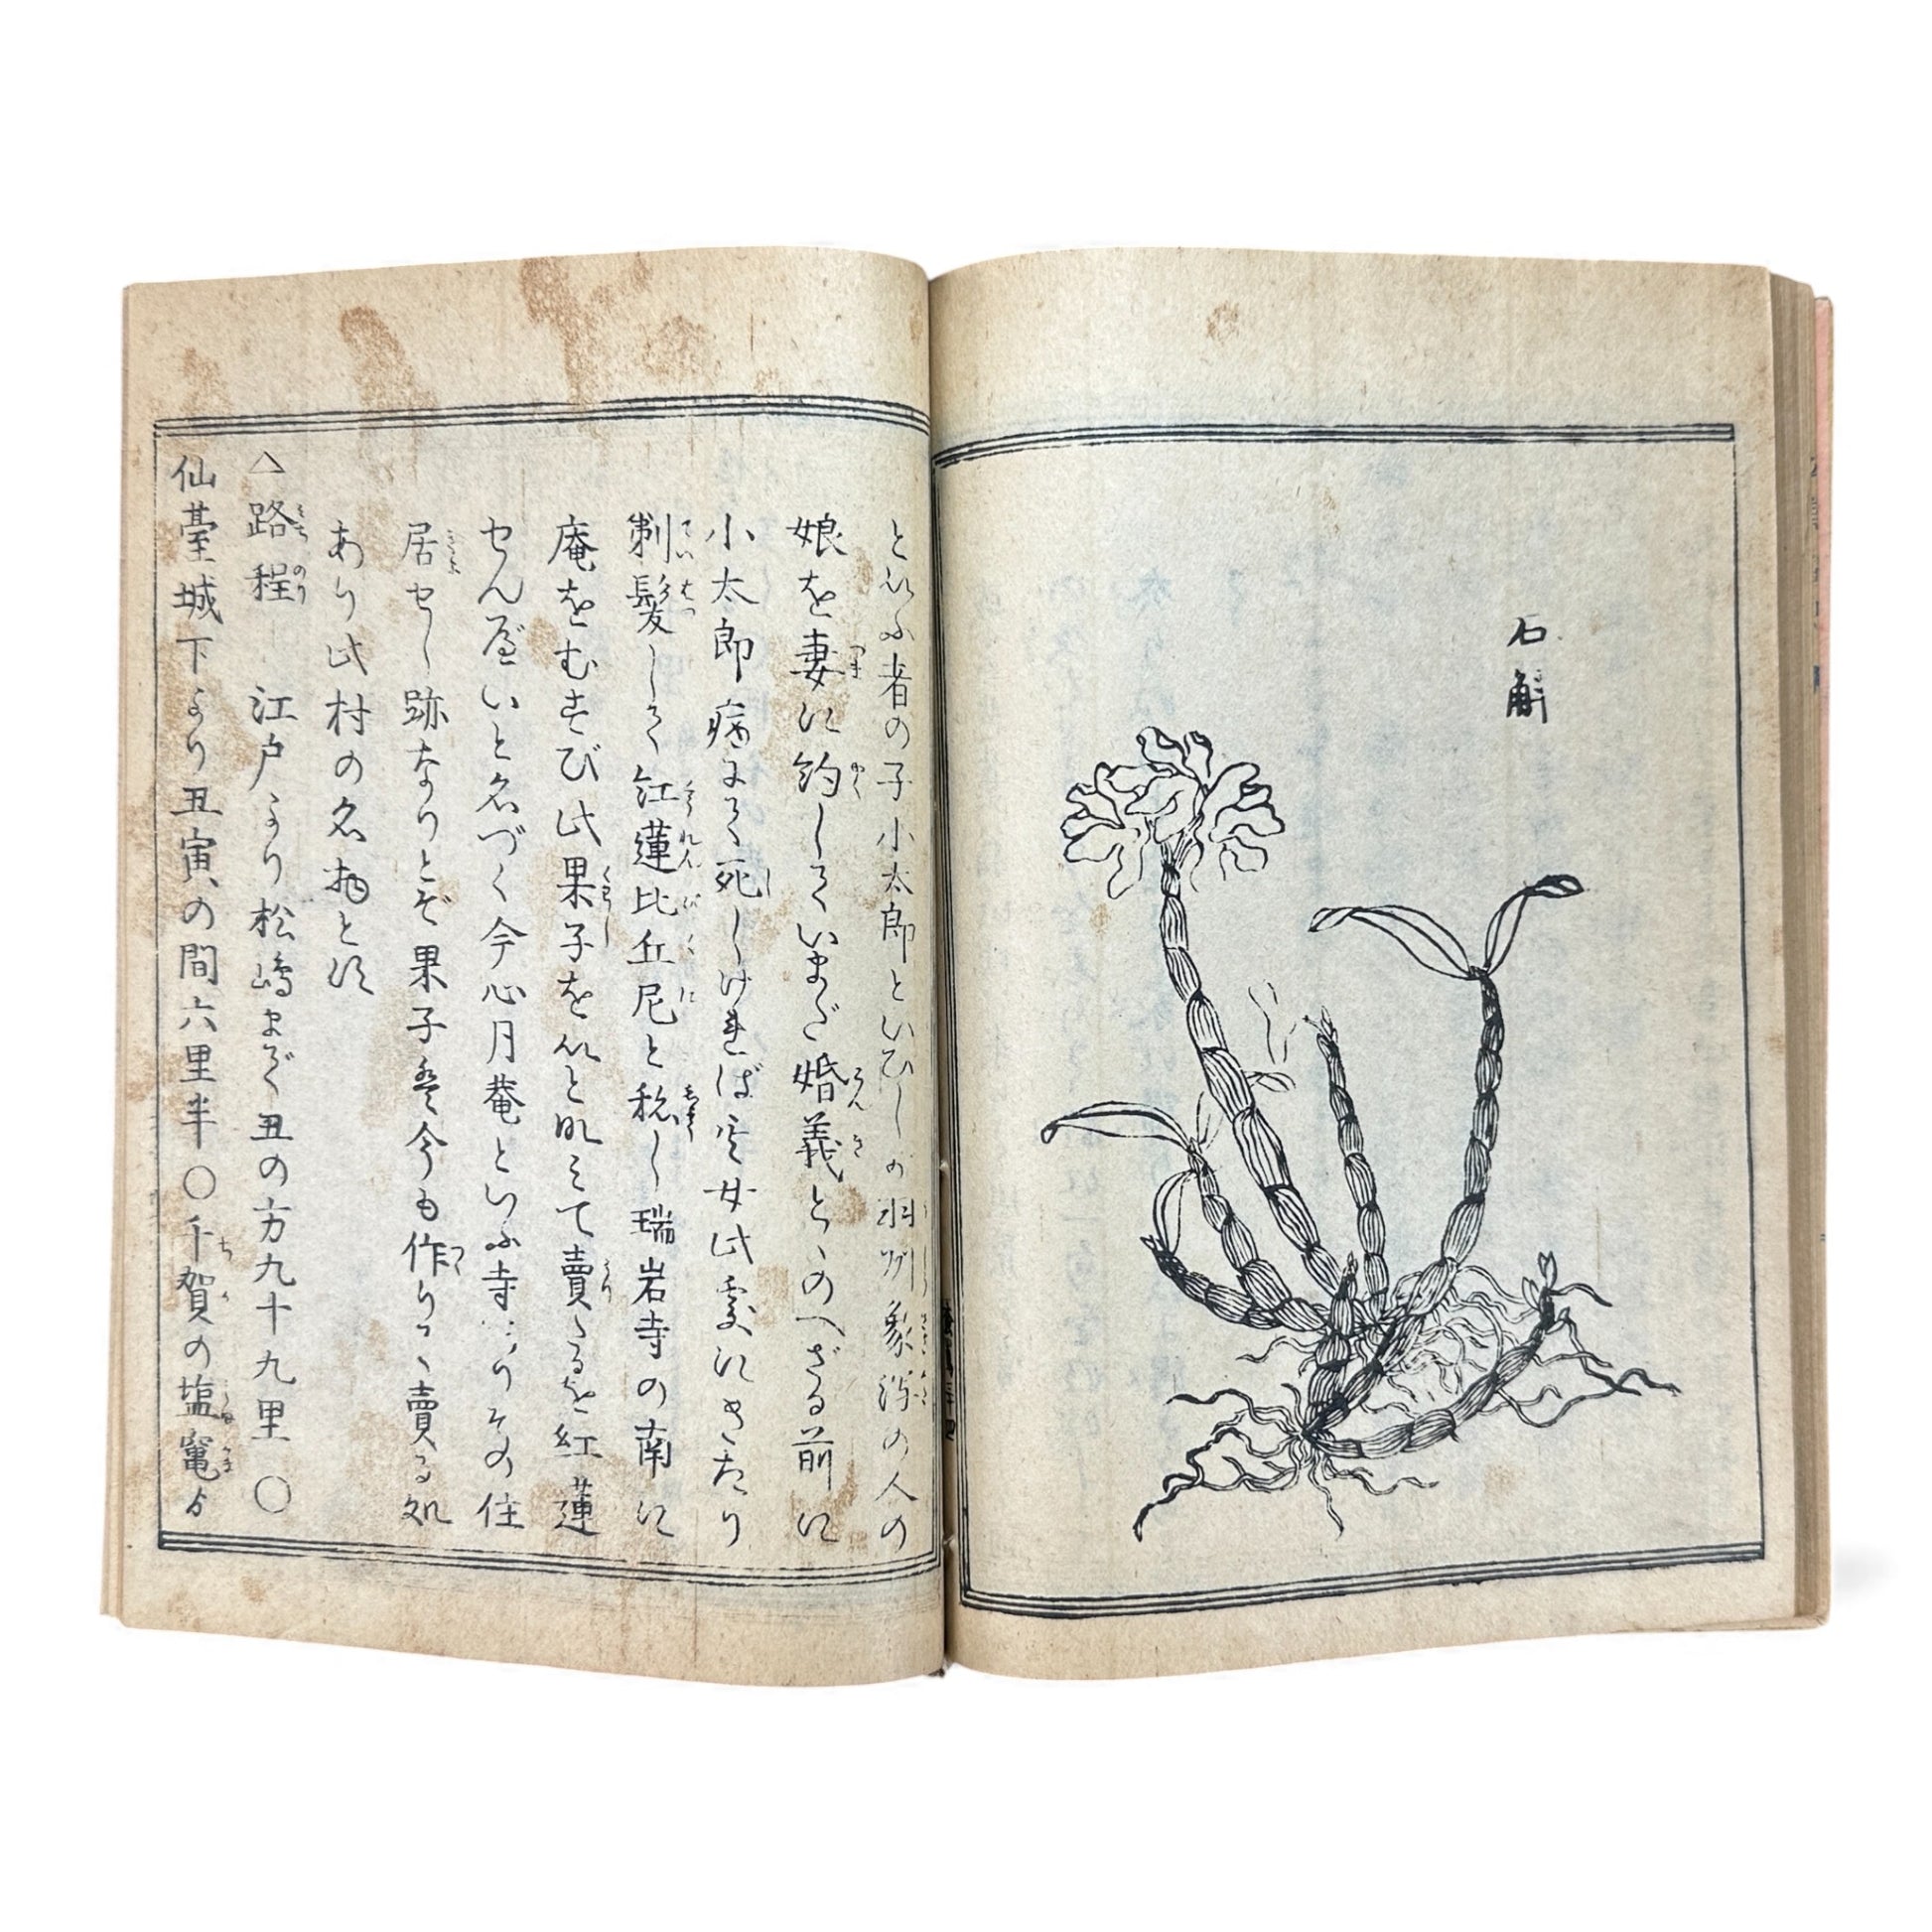 石斛
といふ者の子小太郎といひしが羽州象潟の人の
娘を妻に約していまだ婚義とゝのへざる前に
小太郎病にて死しければ女此處にきたり
剃髪して紅蓮比丘尼と称し瑞岩寺の南に
庵をむすび此果子をいとなみて賣たるを紅蓮
せん屋いと名づく今心月菴といふ寺ありその住
居せし跡なりとぞ果子は今も作りて賣る処
あり此村の名物とす
△路程 江戸より松嶋まで丑の方九十九里○
仙臺城下より丑寅の間六里半○千賀の塩竈ゟ